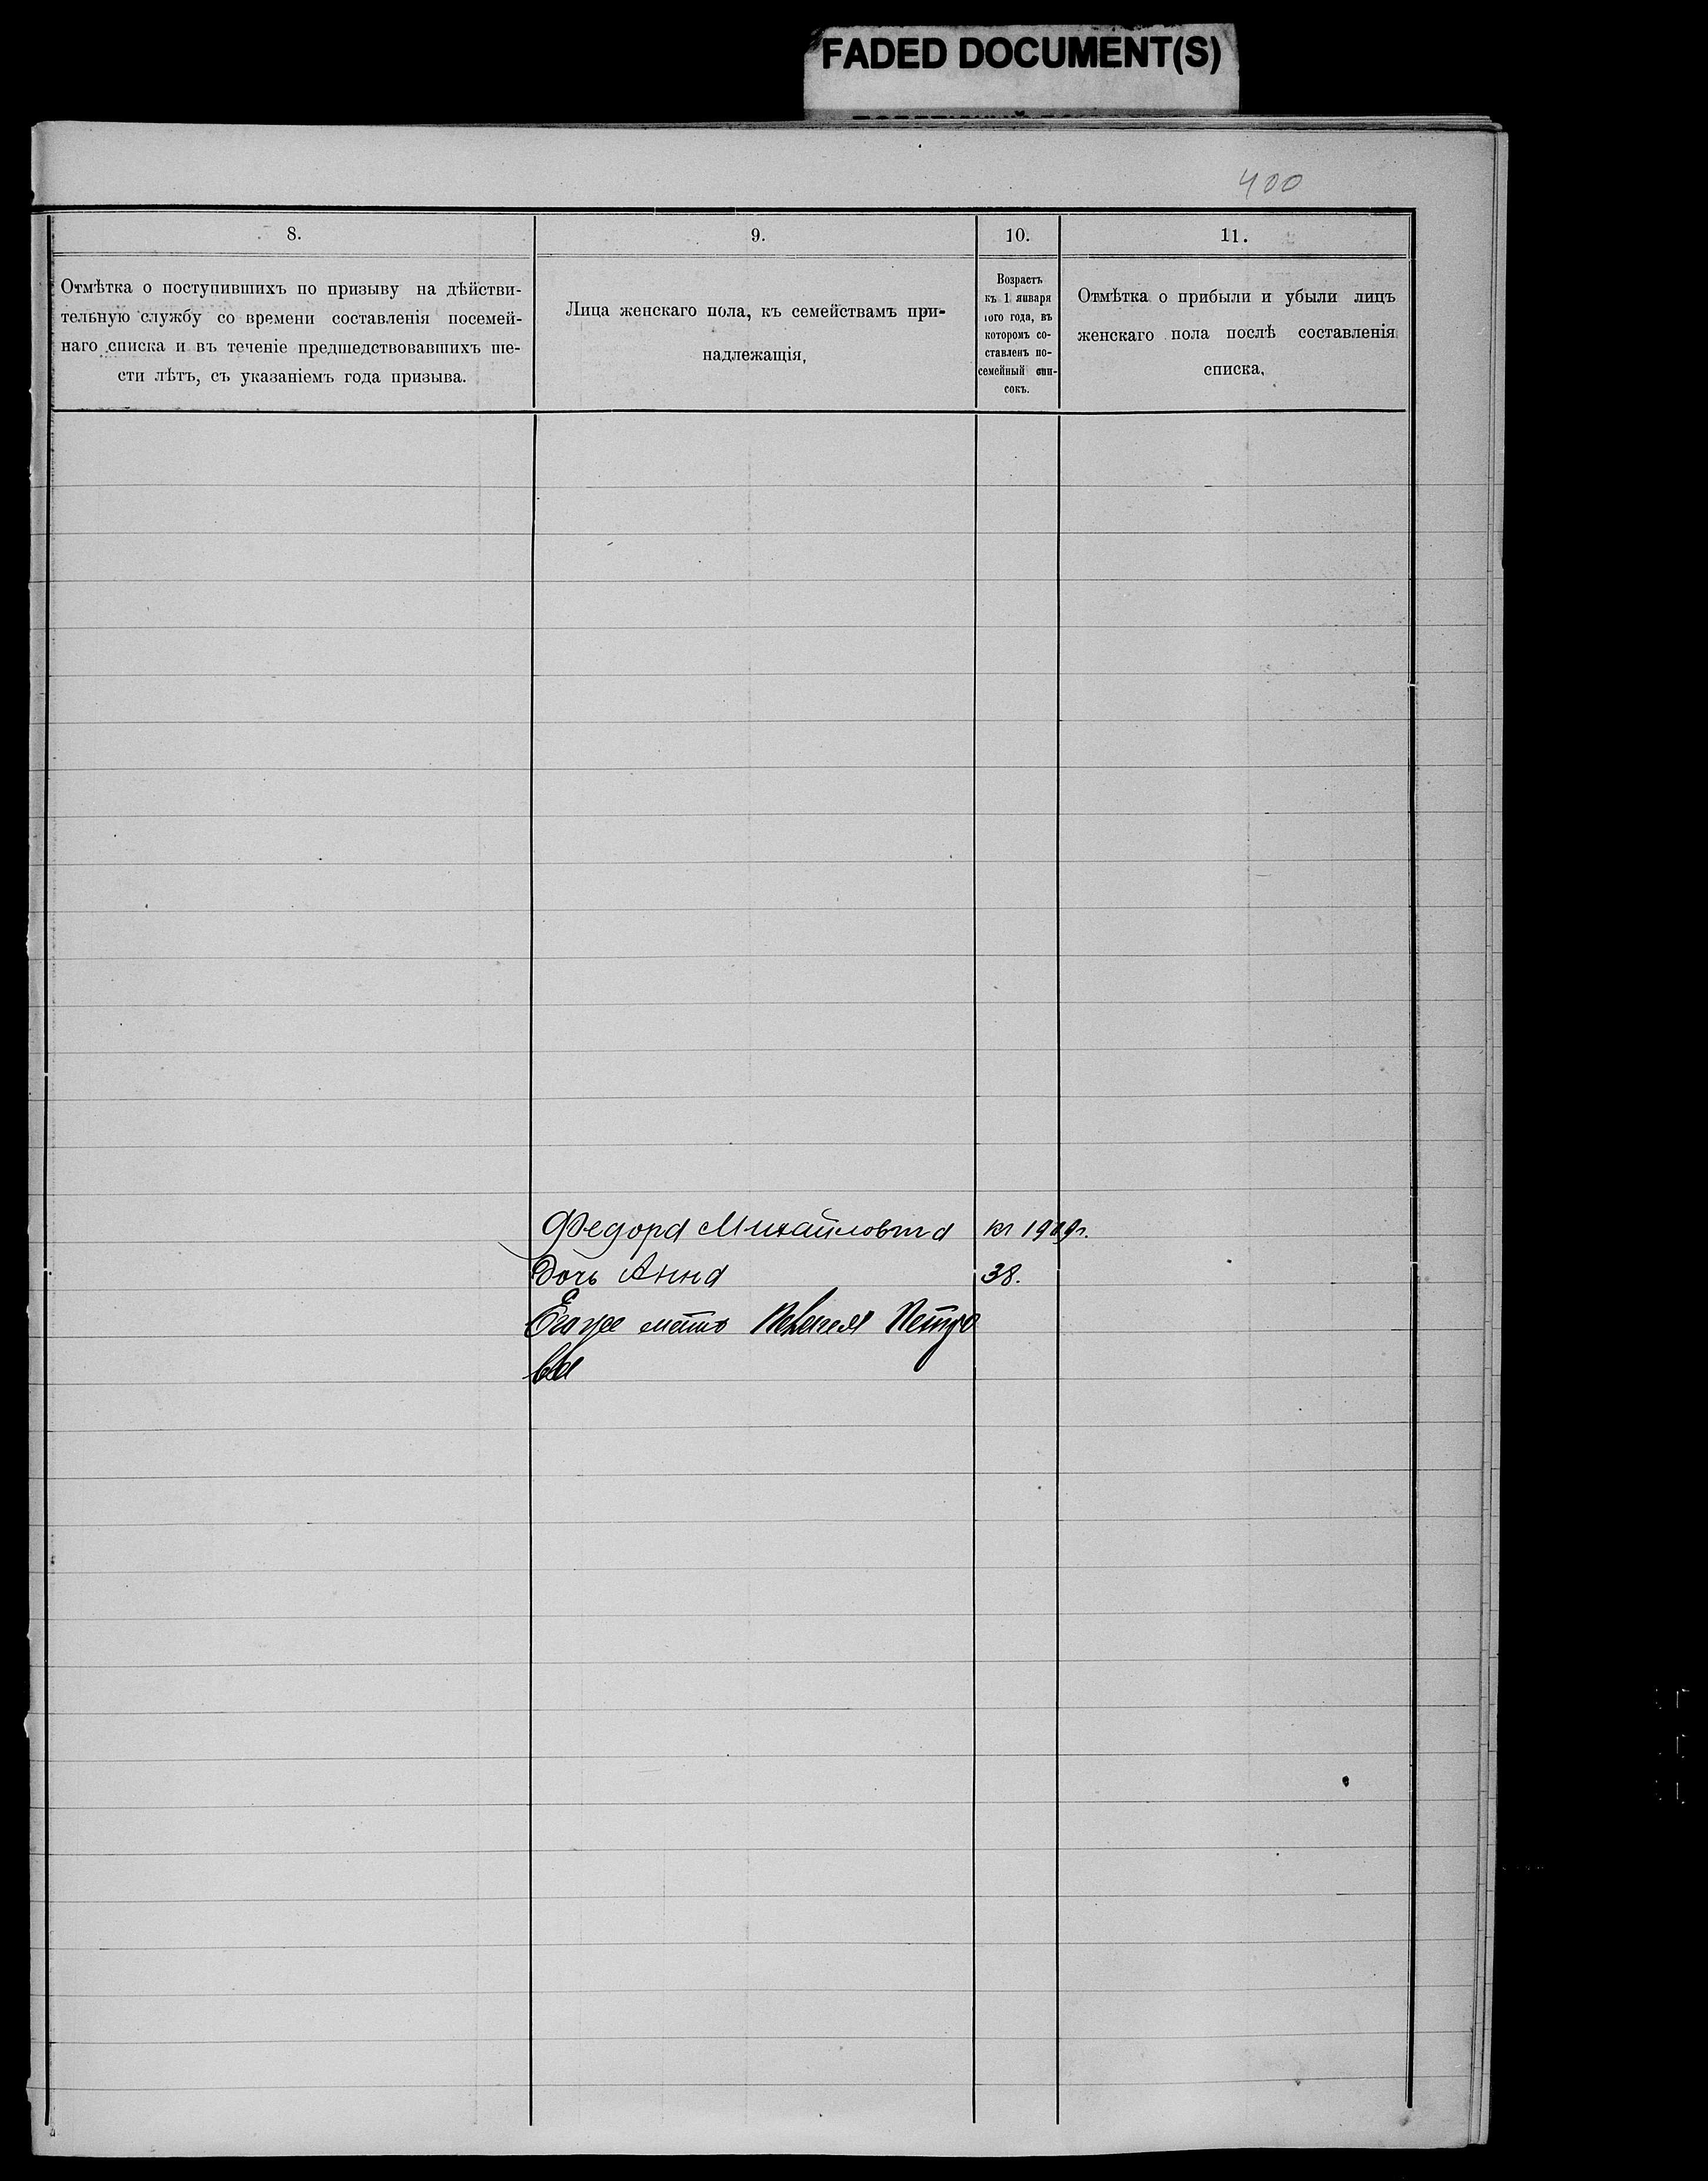 FADED DOCUMENT(S)
400
8.
Отмѣтка о поступившихъ по призыву на дѣйстви-
тельную службу со времени составленія посемей-
наго списка и въ теченіе предшедствовавшихъ ше-
сти лѣтъ, съ указаніемъ года призыва.
9.
Лица женскаго пола, къ семействамъ при-
надлежащія,
10.
Возрастъ
къ 1 января
того года, въ
которомъ со-
ставленъ по-
семейный спи-
сокъ.
11.
Отмѣтка о прибыли и убыли лицъ
женскаго пола послѣ составленія
списка,
Федора Михайловича
къ 1909г.
Дочь Анна
38.
Его же мать Петро
ва